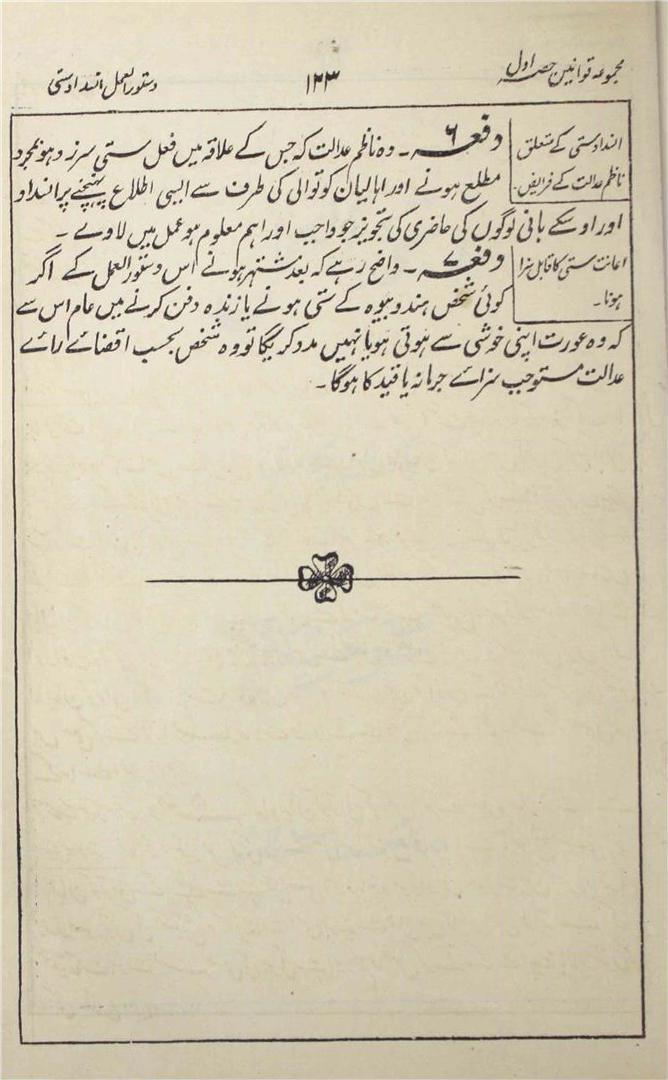 مجموعہ قوانین حصہ اول
۱۲۳
دستور العمل انسدادستی
انسدادستی کے متعلق
ناظم عدالت کے فرایض۔
دفعہ ۶۔ وہ ناظم عدالت کہ جس کے علاقہ میں فعل ستی سرزد ہو بمجرد
مطلع ہونے اور اہالیان کوتوالی کی طرف سے ایسی اطلاع پہنچنے پر انسداد
اور اوسکے بانی لوگوں کی حاضری کی تجویز جو واجب اور اہم معلوم ہو عمل میں لاوے۔
اعانت ستی کا قابل سزا
ہونا۔
دفعہ ۷۔ واضح رہے کہ بعد مشتہر ہونے اس دستور العمل کے اگر
کوئی شخص ہندو بیوہ کے ستی ہونے یا زندہ دفن کرنے میں عام اس سے
کہ وہ عورت اپنی خوشی سے ہوتی ہو یا نہیں مدد کریگا تو وہ شخص بحسب اقضائے رائے
عدالت مستوجب سزائے جرمانہ یا قید کا ہوگا۔